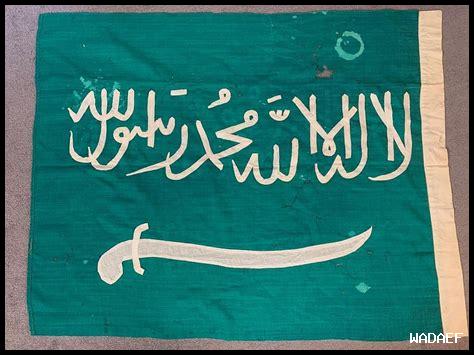 لا إله إلا الله محمد رسول الله
WADAEF